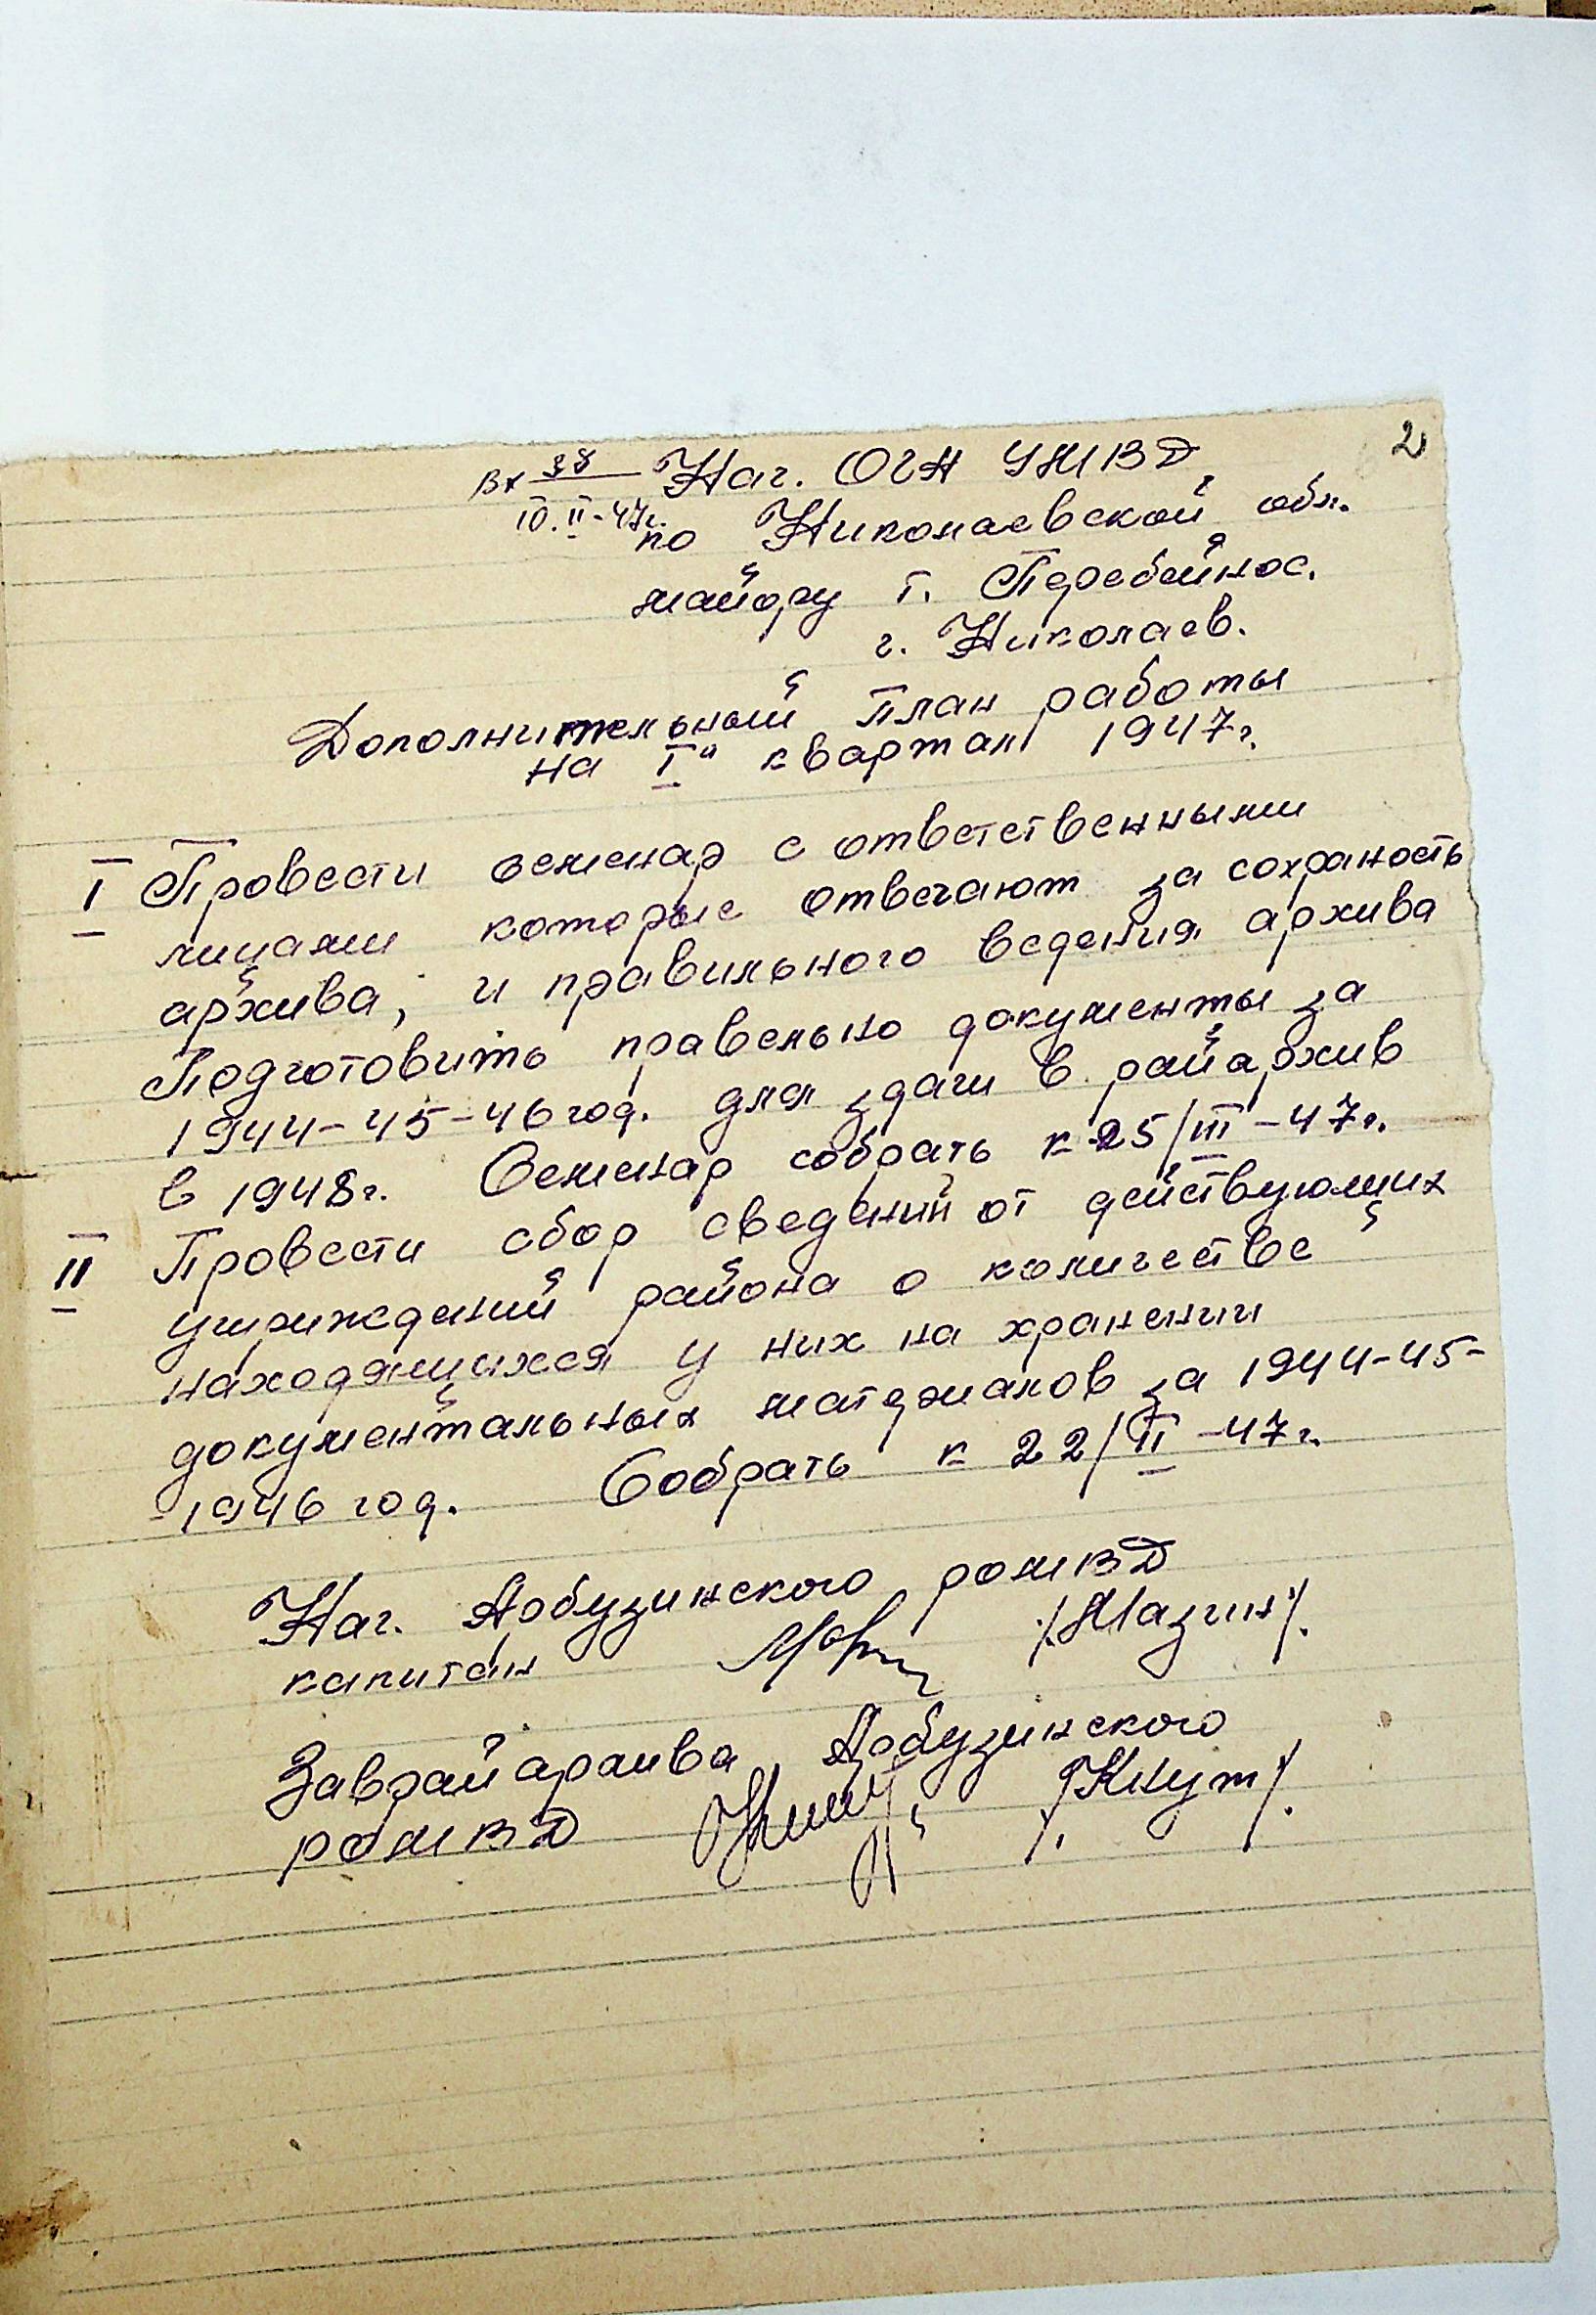 2
Вх 38 Нач. ОГА УМВД
10.II-47г.
по Николаевской обл.
майору т. Перебейнос.
г. Николаев.
Дополнительный План работы
на I" квартал 1947г.
I Провести семенар с ответственными
лицами которые отвечают за сохраность
архива, и правильного ведения архива
Подготовить правельно документы за
1944-45-46 год. для здачи в райархив
в 1948г. Семенар собрать к 25/III-47г.
II Провести сбор сведений от действующих
учриждений района о количестве
находящихся у них на хранении
документальных матерьялов за 1944-45-
-1946 год. Собрать к 22/II-47г.
Нач. Арбузинского РОМВД
капитан /Мазин/.
Заврайархива Арбузинского
РОМВД /Кнут/.